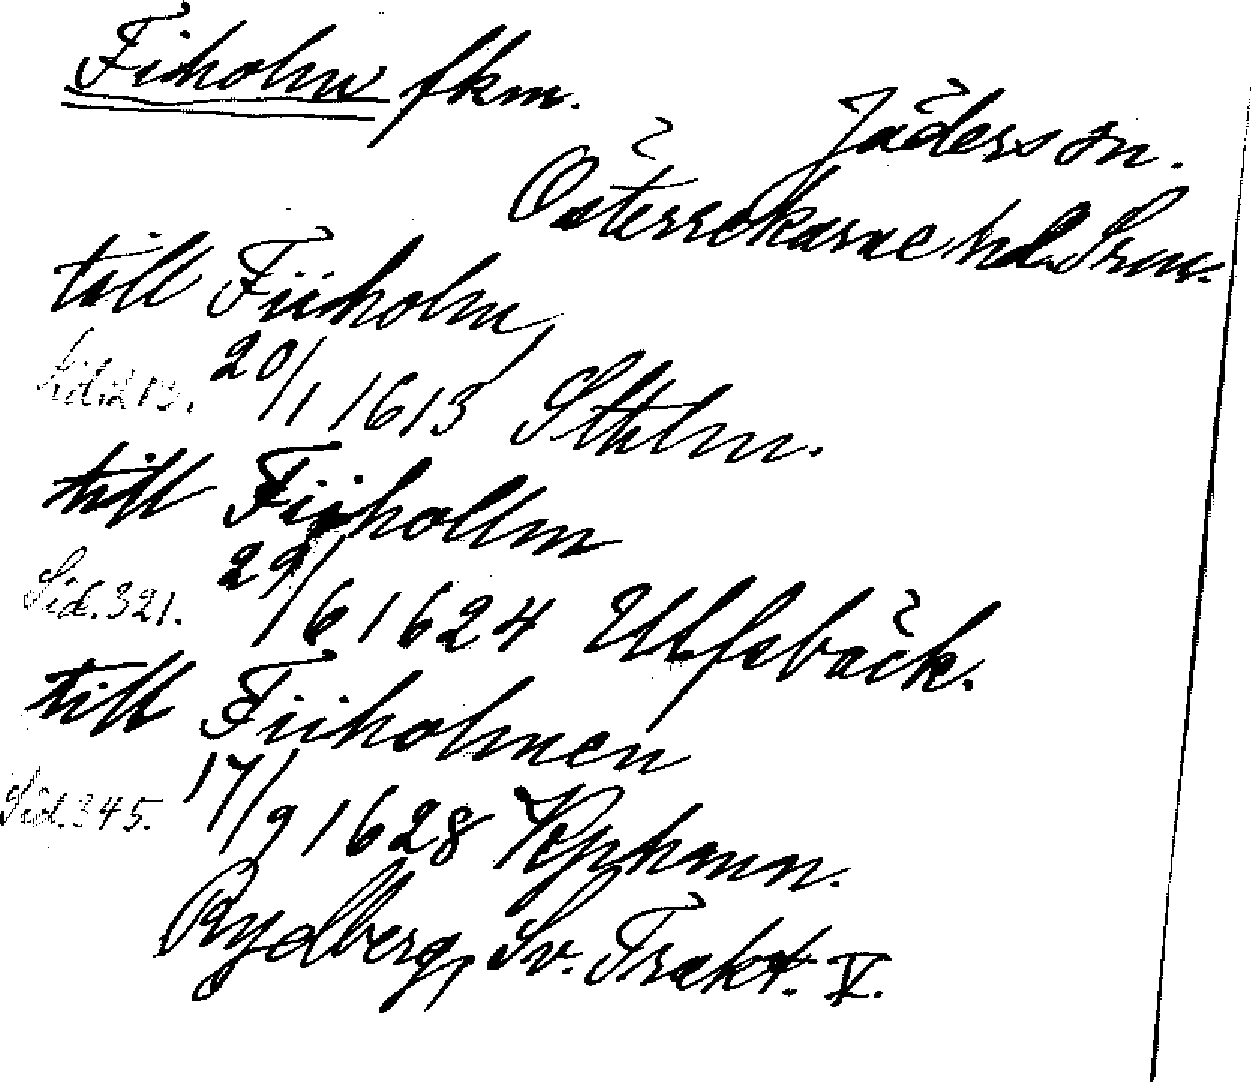 Fiholm fkm.
Jäders sn.
Österrekarne hd. Srm.
till Fiiholm,
Sid. 213. 20/1 1613 Sthlm.
till Fijhollm
Sid. 321. 29/6 1624 Ulfsbäck.
till Fiiholmen
Sid. 345. 17/9 1628 Kphmn.
Rydberg, Sv. Trakt. V.